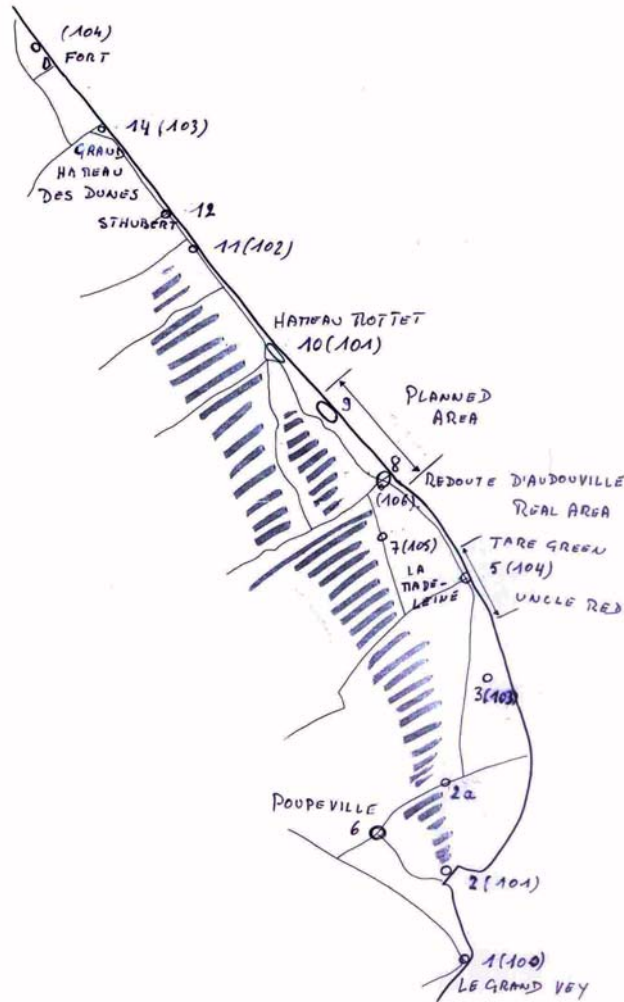 (104)
D FORT
14 (103)
GRAND
HAMEAU
DES DUNES
12
ST HUBERT
11 (102)
HAMEAU MOTTET
10 (101)
9
PLANNED
AREA
8
(106)
REDOUTE D'AUDOUVILLE
REAL AREA
7 (105)
LA
MADE-
LEINE
TARE GREEN
5 (104)
UNCLE RED
3 (103)
2a
POUPEVILLE
6
2 (101)
1 (100)
LE GRAND VEY